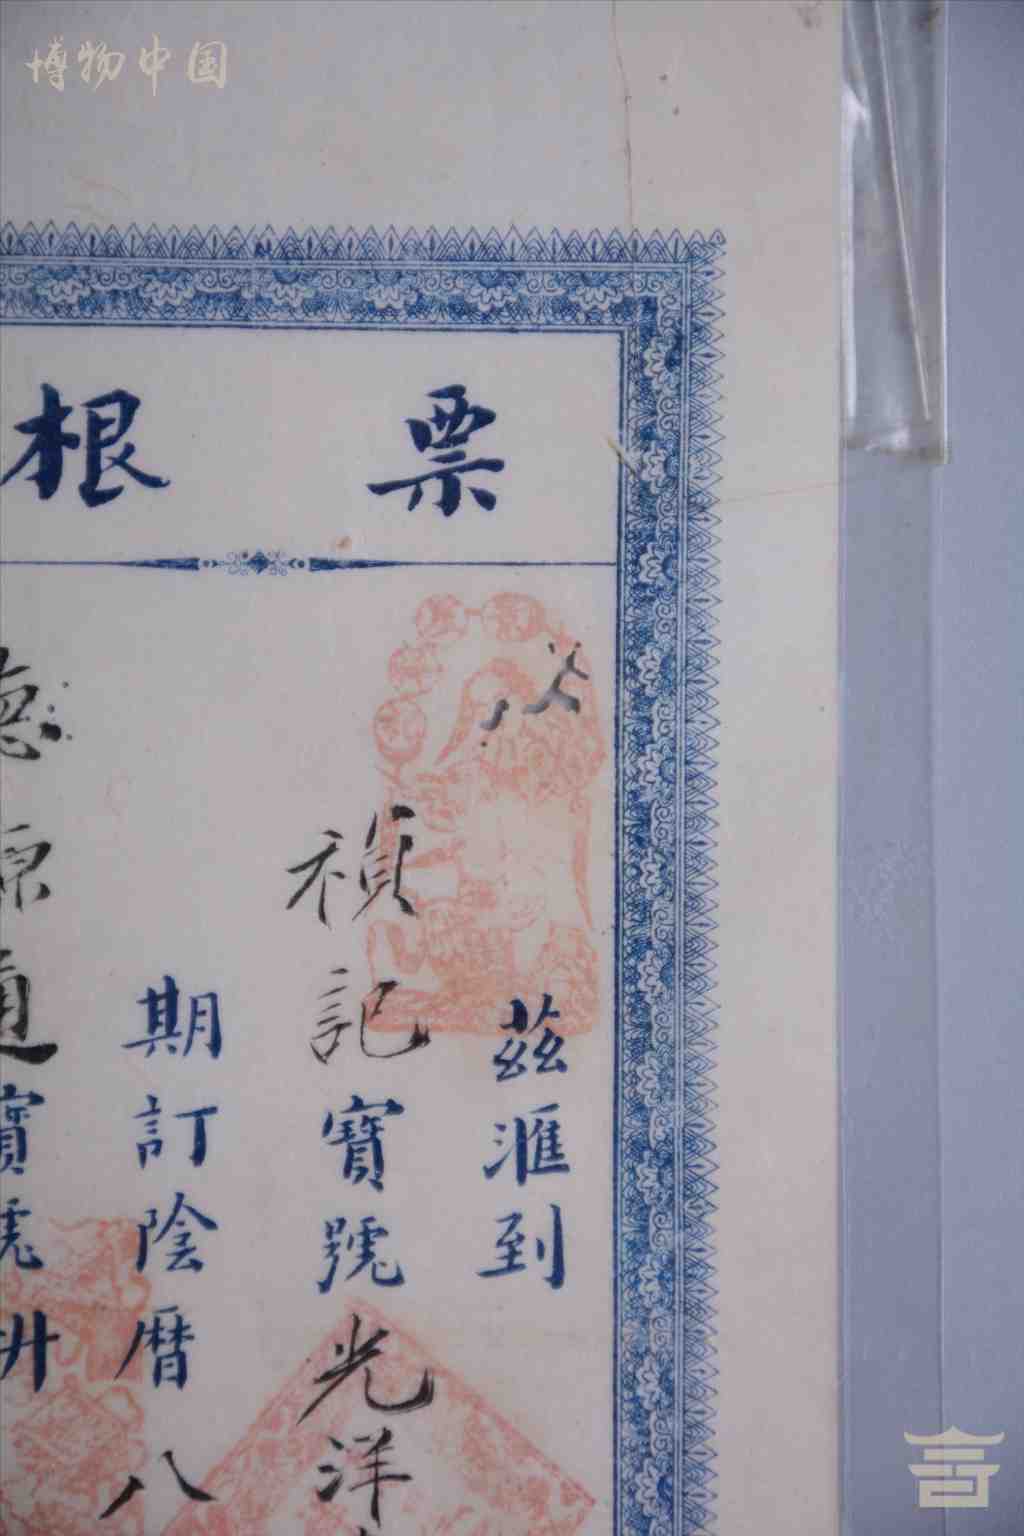 博物中国
票根
茲滙到
禎記寶號光洋
期訂陰曆八
德源通寶號